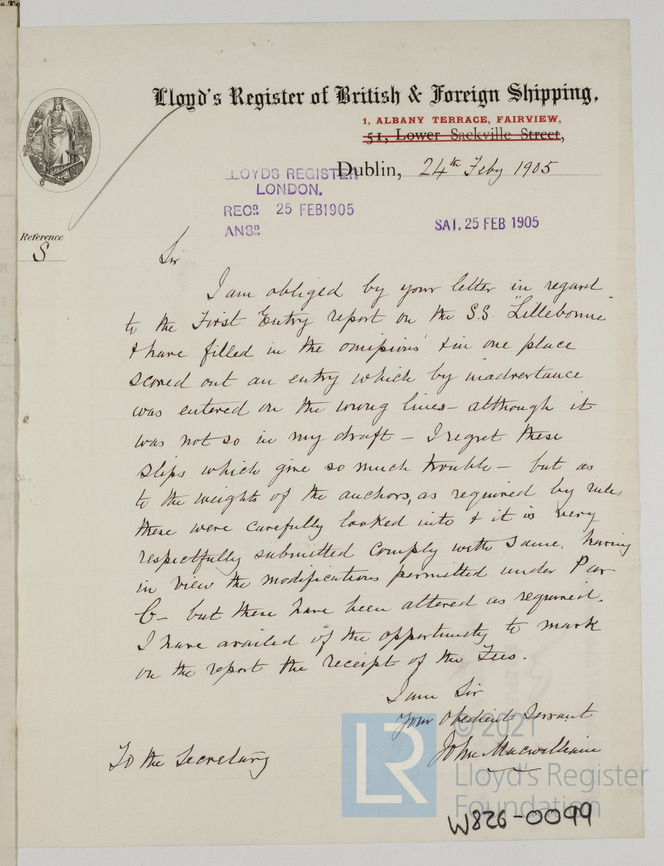 Lloyd's Register of British & Foreign Shipping.
1, ALBANY TERRACE, FAIRVIEW,
51, Lower Sackville Street,
Dublin, 24th Feby 1905
LLOYDS REGISTER
LONDON.
RECD. 25 FEB1905
ANSD.
SAT. 25 FEB 1905
Reference
S
Sir
I am obliged by your letter in regard
to the First Entry report on the S.S. "Lillebonne"
& have filled in the omissions & in one place
scored out an entry which by inadvertance
was entered on the wrong lines – although it
was not so in my draft – I regret these
slips which give so much trouble – but as
to the weights of the anchors, as required by rule,
these were carefully looked into & it is very
respectfully submitted comply with same, having
in view the modifications permitted under Par
C – but these have been altered as required.
I have availed of the opportunity to mark
on the report the receipt of the Fees.
I am Sir
Your Obedient Servant
John Macwilliam
To the Secretary
LR
© 2021
Lloyd's Register
Foundation
W826-0099